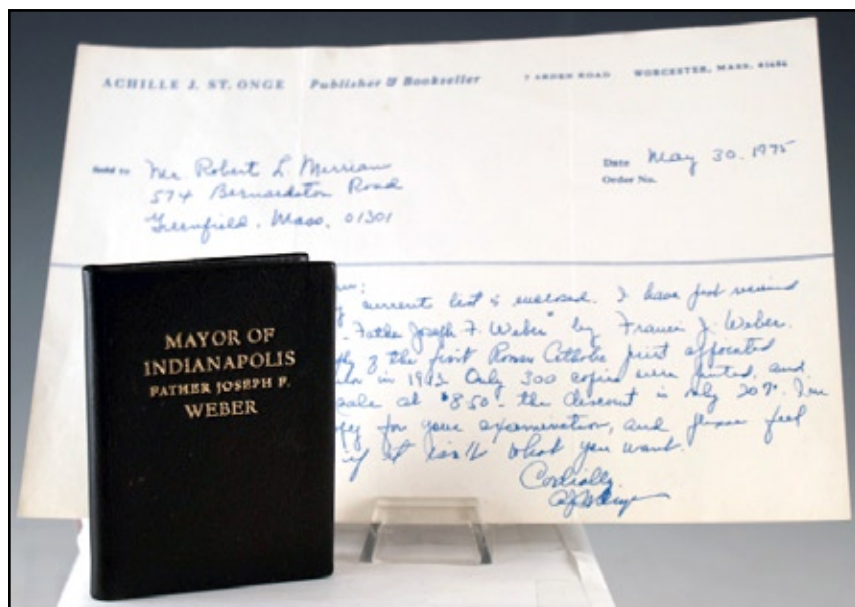 ACHILLE J. ST. ONGE Publisher & Bookseller 7 ARDEN ROAD WORCESTER, MASS. 01606
Sold to Mr. Robert L. Merriam
574 Bernardston Road
Greenfield, Mass. 01301
Date May 30, 1975
Order No.
current list is enclosed. I have just received
Father Joseph F. Weber" by Francis J. Weber.
of the first Roman Catholic priest appointed
in 1943. Only 300 copies were printed, and
sale at $8.50 - the discount is only 20%. I'm
copy for your examination, and please feel
if it isn't what you want.
Cordially,
MAYOR OF
INDIANAPOLIS
FATHER JOSEPH F.
WEBER